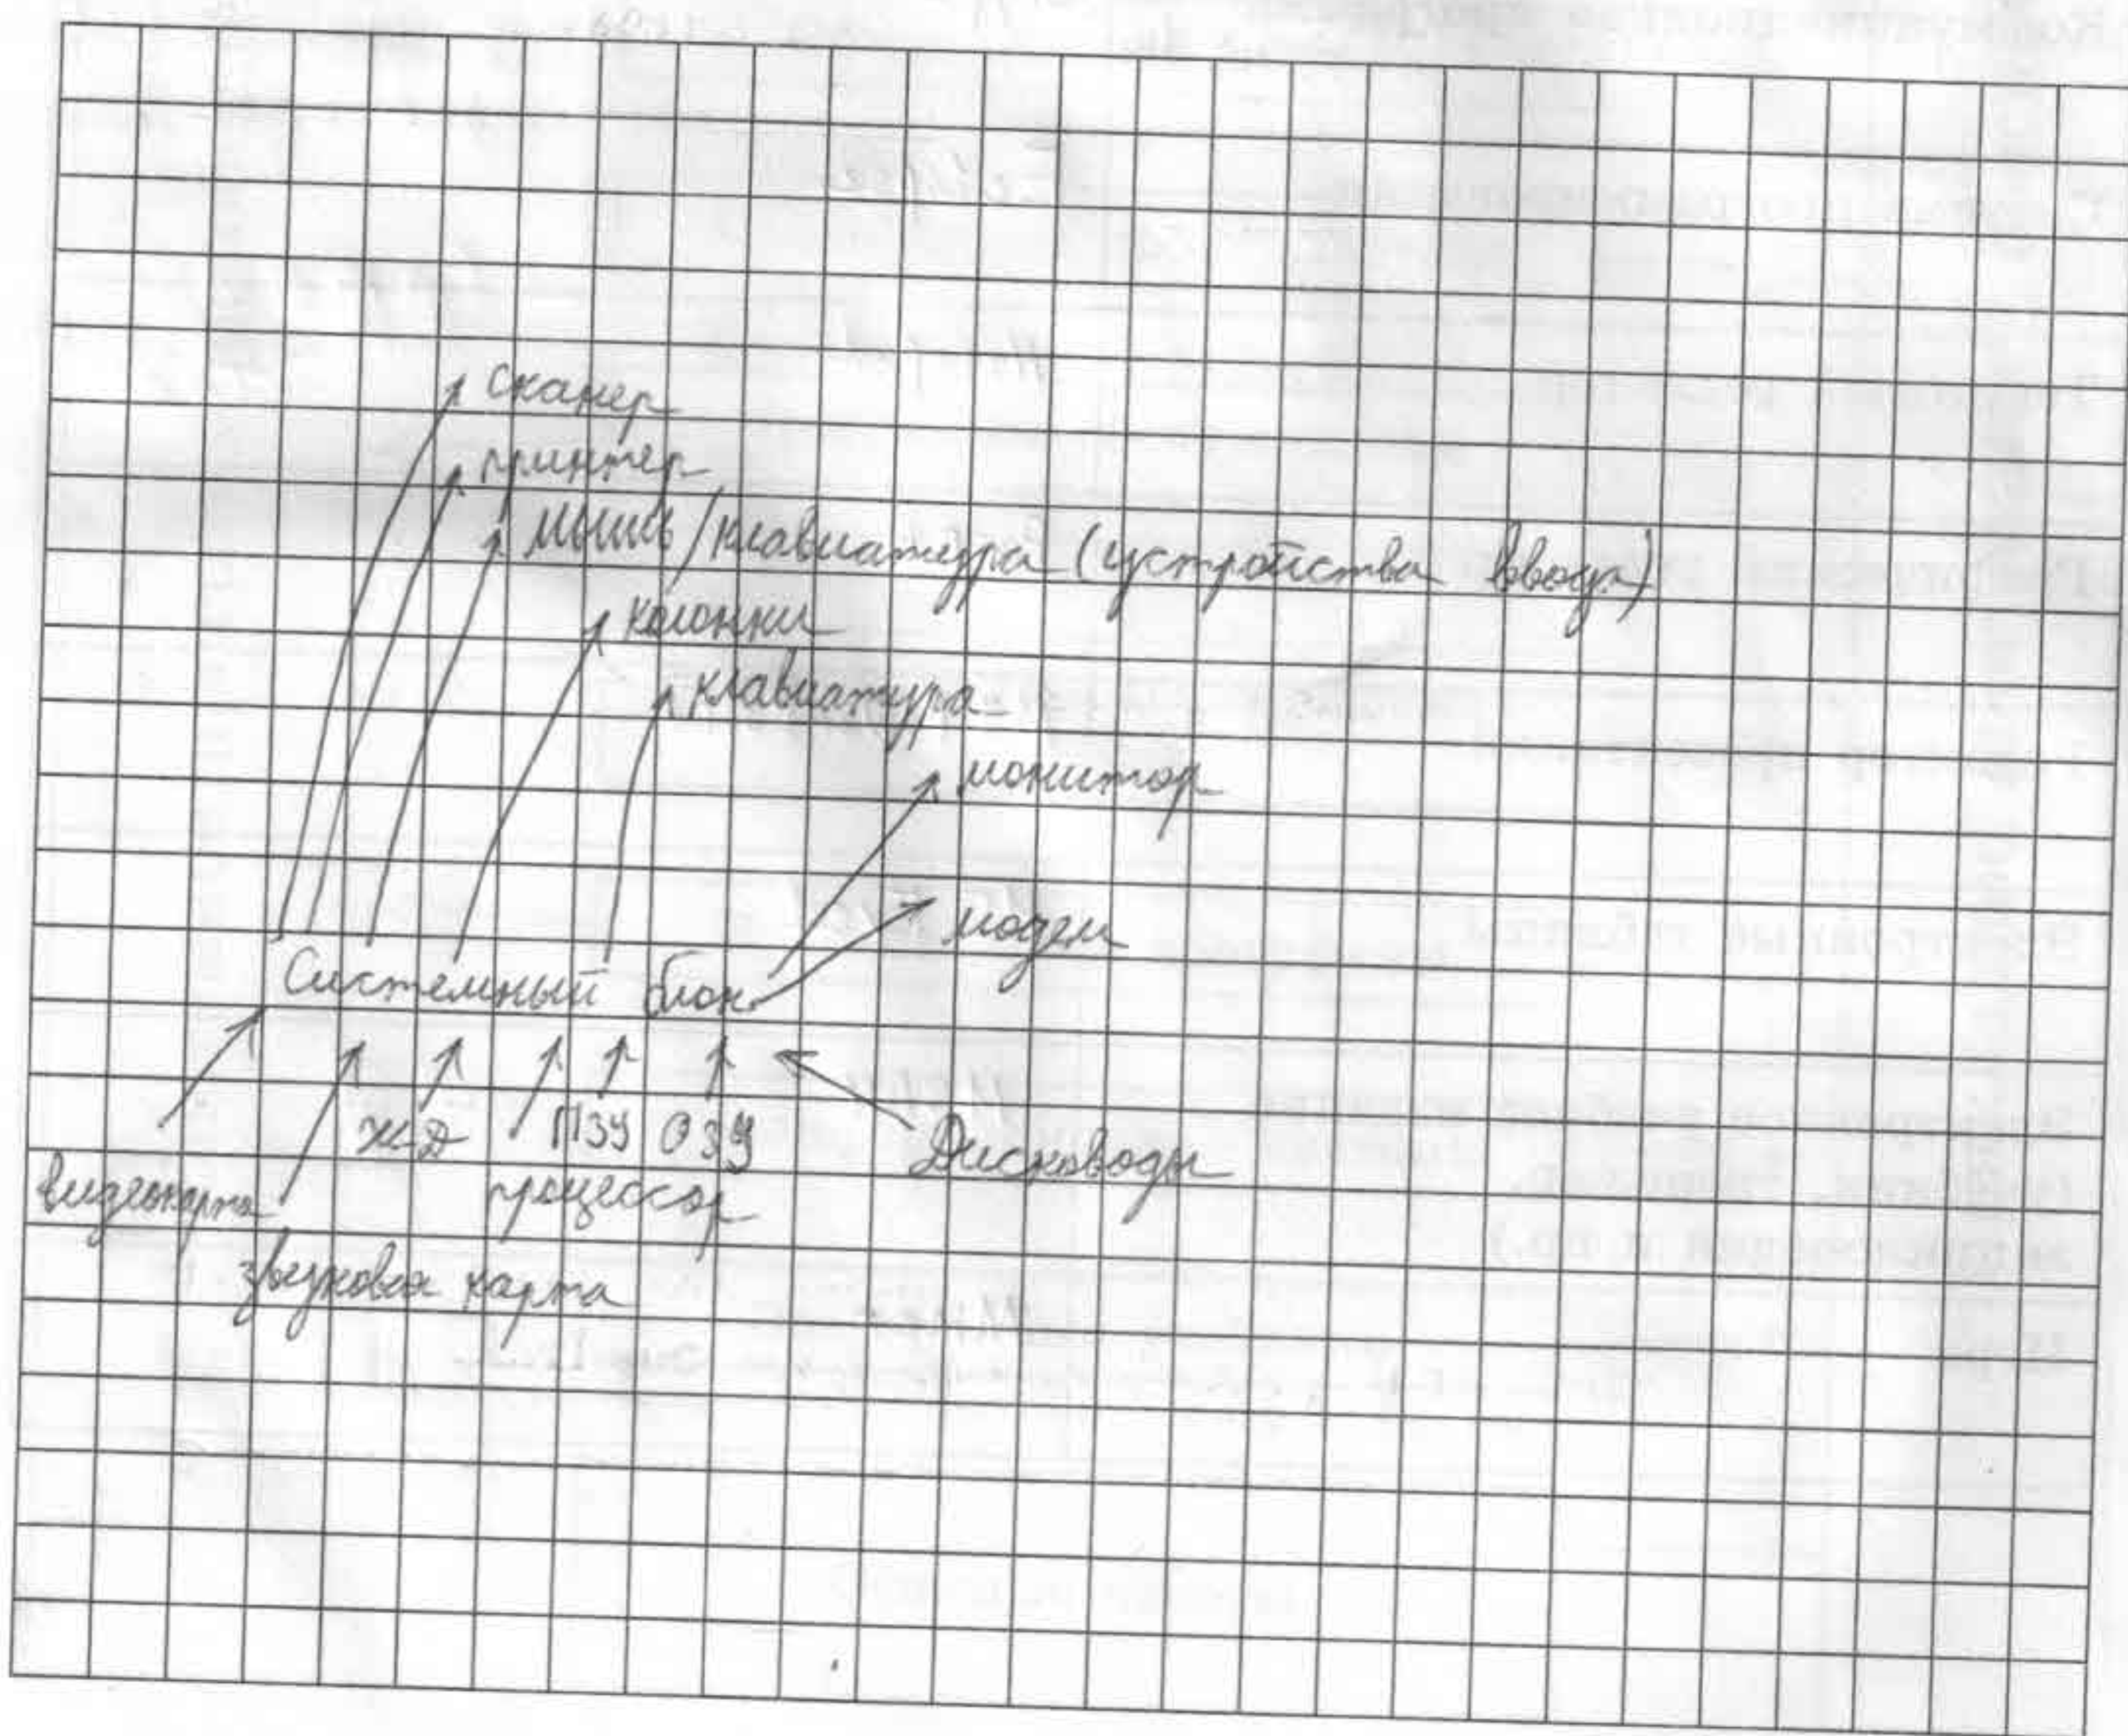 сканер
принтер
мышь/клавиатура (устройства ввода)
колонки
клавиатура
монитор
модем
Системный блок
ЖД ПЗУ ОЗУ Дисководы
видеокарта процессор
звуковая карта